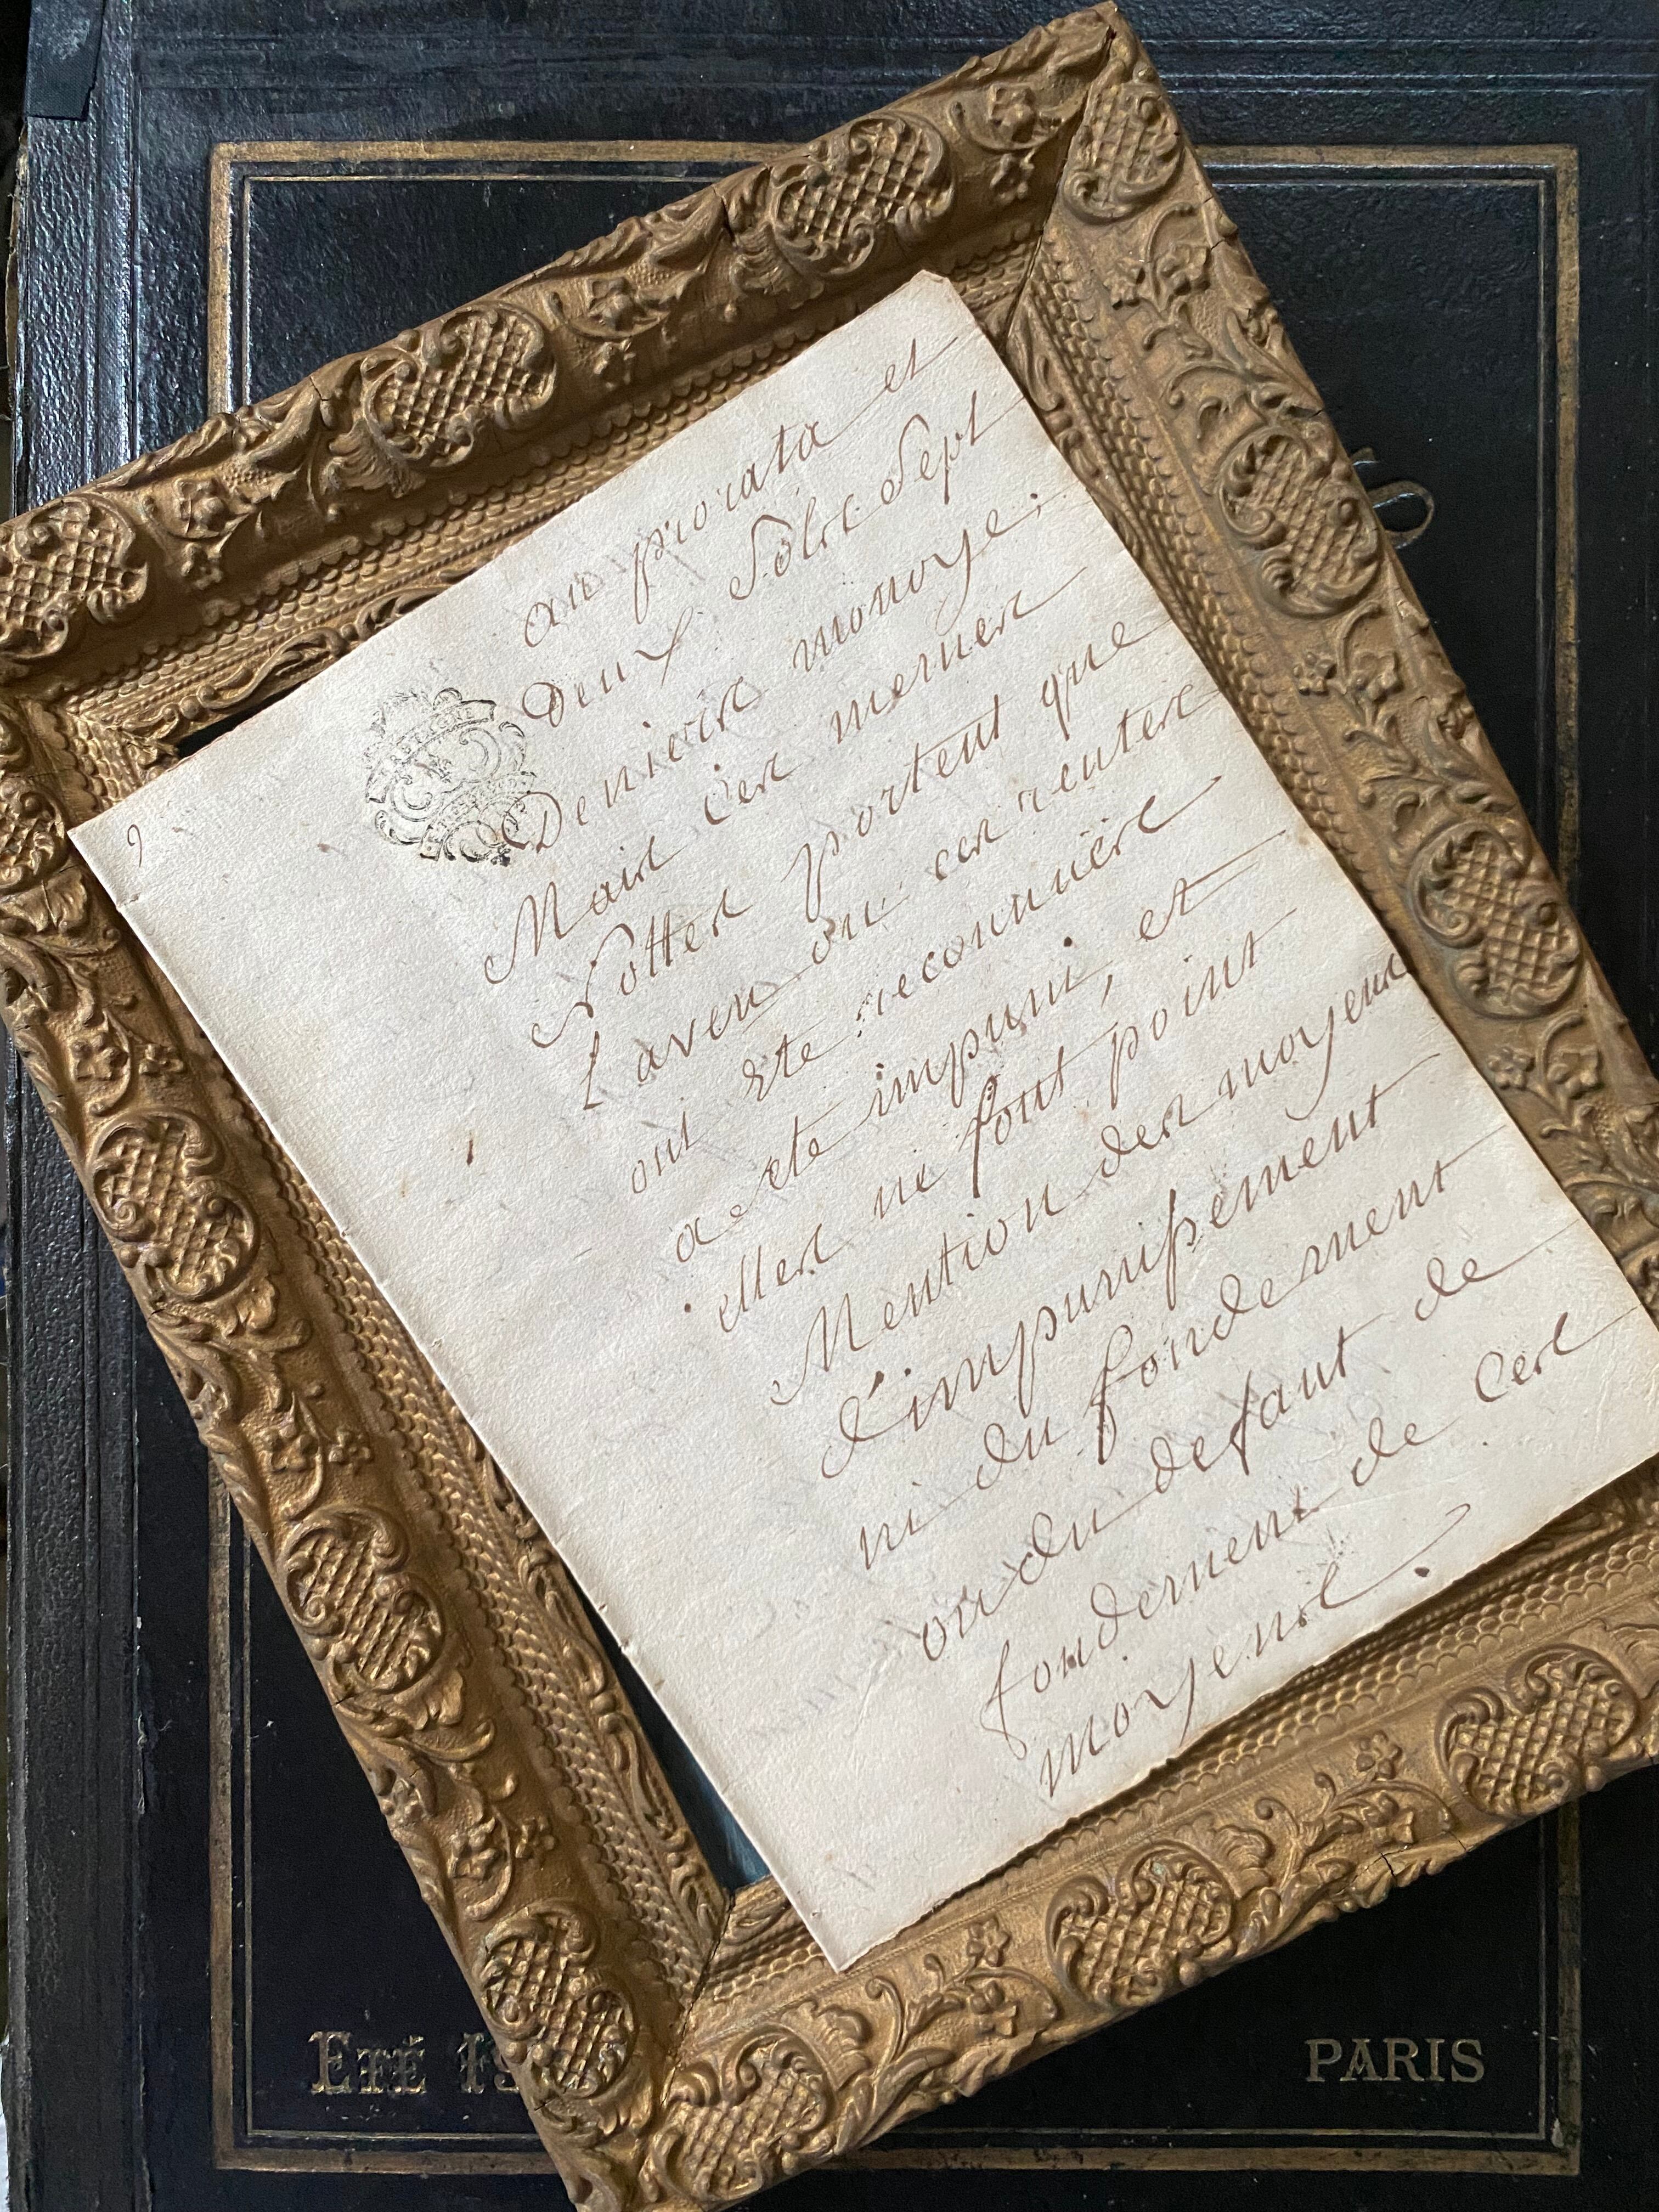 9
au prorata et
Deux Sols Sept
Deniers monoye;
Mais ces memes
Nottes portent que
L'aveu ou ces rentes
ont Ete reconnües
a ete impuni, et
elles ne font point
Mention des moyens
d'impunissement
ni du fondement
ou du defaut de
fondement de Ces
moyens.
Eté 19
PARIS